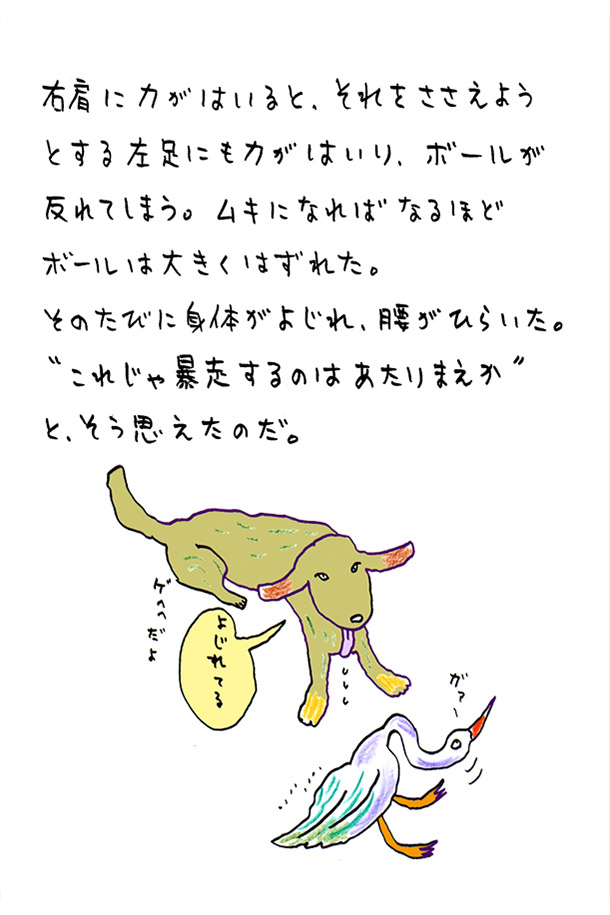 右肩に力がはいると、それをささえよう
とする左足にも力がはいり、ボールが
反れてしまう。ムキになればなるほど
ボールは大きくはずれた。
そのたびに身体がよじれ、腰がひらいた。
"これじゃ暴走するのはあたりまえか"
と、そう思えたのだ。
ゲへへだよ
よじれてる
ガァー